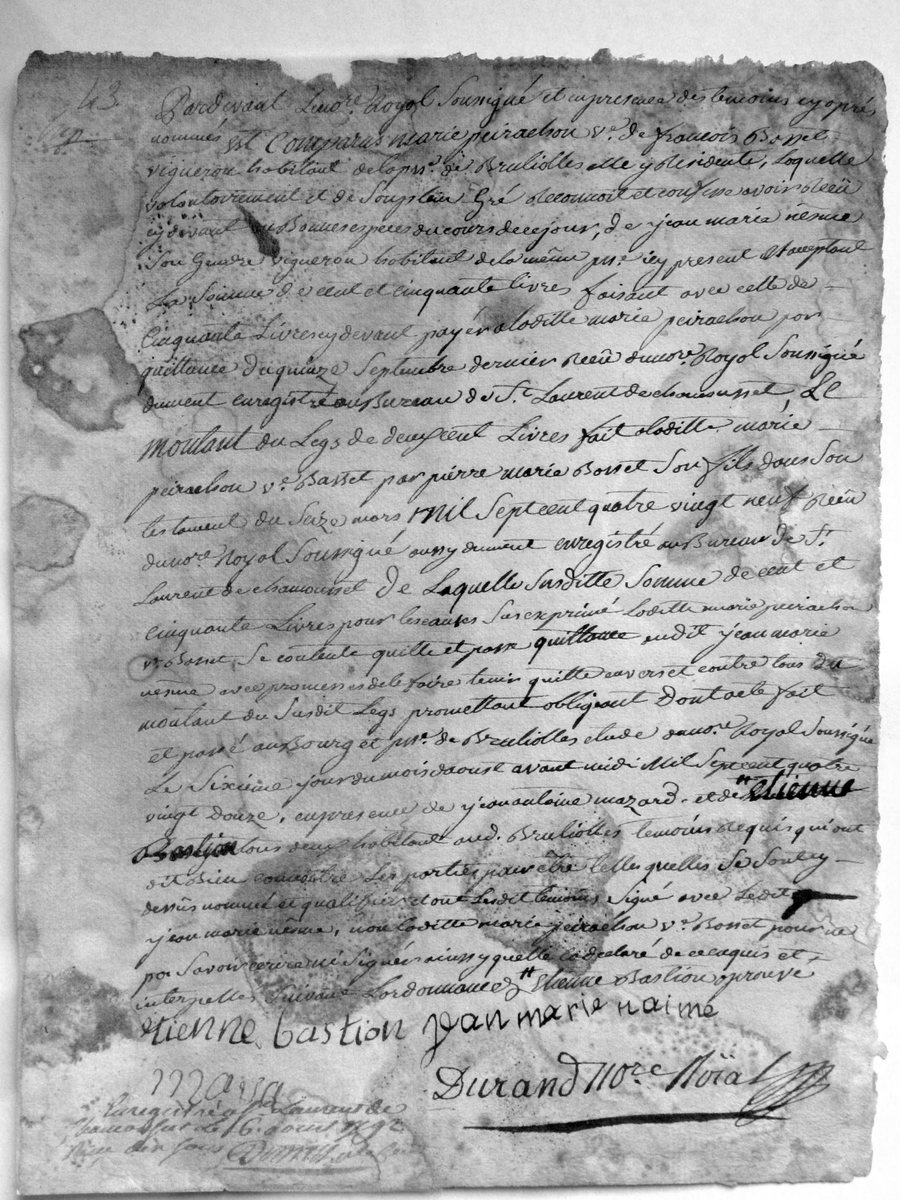 43.
Pardevant Le nore. Royal Soussigné et en presence des temoins cy aprés
nommés est Comparus marie peirachon ve. de francois Basset
vigneron habitant de la psse. de Brulliolles elle y Residente, Laquelle
volontairement et de Son plein Gré Reconnoit et confesse avoir Reçû
cy devant en Bonnes especes du cours de ce jour, de jean marie nesme
Son Gendre vigneron habitant de la même psse. icy present et acceptant
La Somme de cent et cinquante livres faisant avec celle de
Cinquante Livres cy devant payér a laditte marie peirachon par
quittance du quinze Septembre dernier Reçû du nore. Royal Soussigné
dument enregistré au Bureau de St. Laurent de chamousset, Le
montant du Legs de deux cent Livres fait a laditte marie
peirachon ve. Basset par pierre marie Basset Son fils dans Son
testament du Seize mars mil Sept cent quatre vingt neuf Reçû
du nore. Royal Soussigné aussy dument enregistré au Bureau de St.
Laurent de chamousset De Laquelle Susditte Somme de cent et
cinquante Livres pour les causes Sus exprimé Laditte marie peirachon
ve. Basset, Se contente quitte et passe quittance audit jean marie
nesme avec promesses de le faire tenir quitte envers et contre tous du
montant du Susdit Legs promettant obligeant Dont acte fait
et passé au Bourg et psse. de Brulliolles etude du nore. Royal Soussigné
Le Sixieme jour du mois d'aoust avant midi Mil Sept cent quatre
vingt douze, en presence de jean antoine mazard et de etienne
Bastion tous deux habitant aud. Brulliolles temoins Requis qui ont
dit Bien connoitre Les parties pour être telles quelles Se Sont cy
dessus nommé et qualifier dont Lesdit temoins Signé avec Ledit
jean marie nesme, non laditte marie peirachon ve. Basset pour ne
pas Savoir ecrire ni Signér ainsy quelle la declaré de ce enquis et
interpellés Suivant Lordonnance etienne Bastion aprouvé
etienne bastion jean marie naime
Durand nore Roïal
Enregistré a St. Laurent de
Chamousset le 16. aout 1792
Reçu dix sous